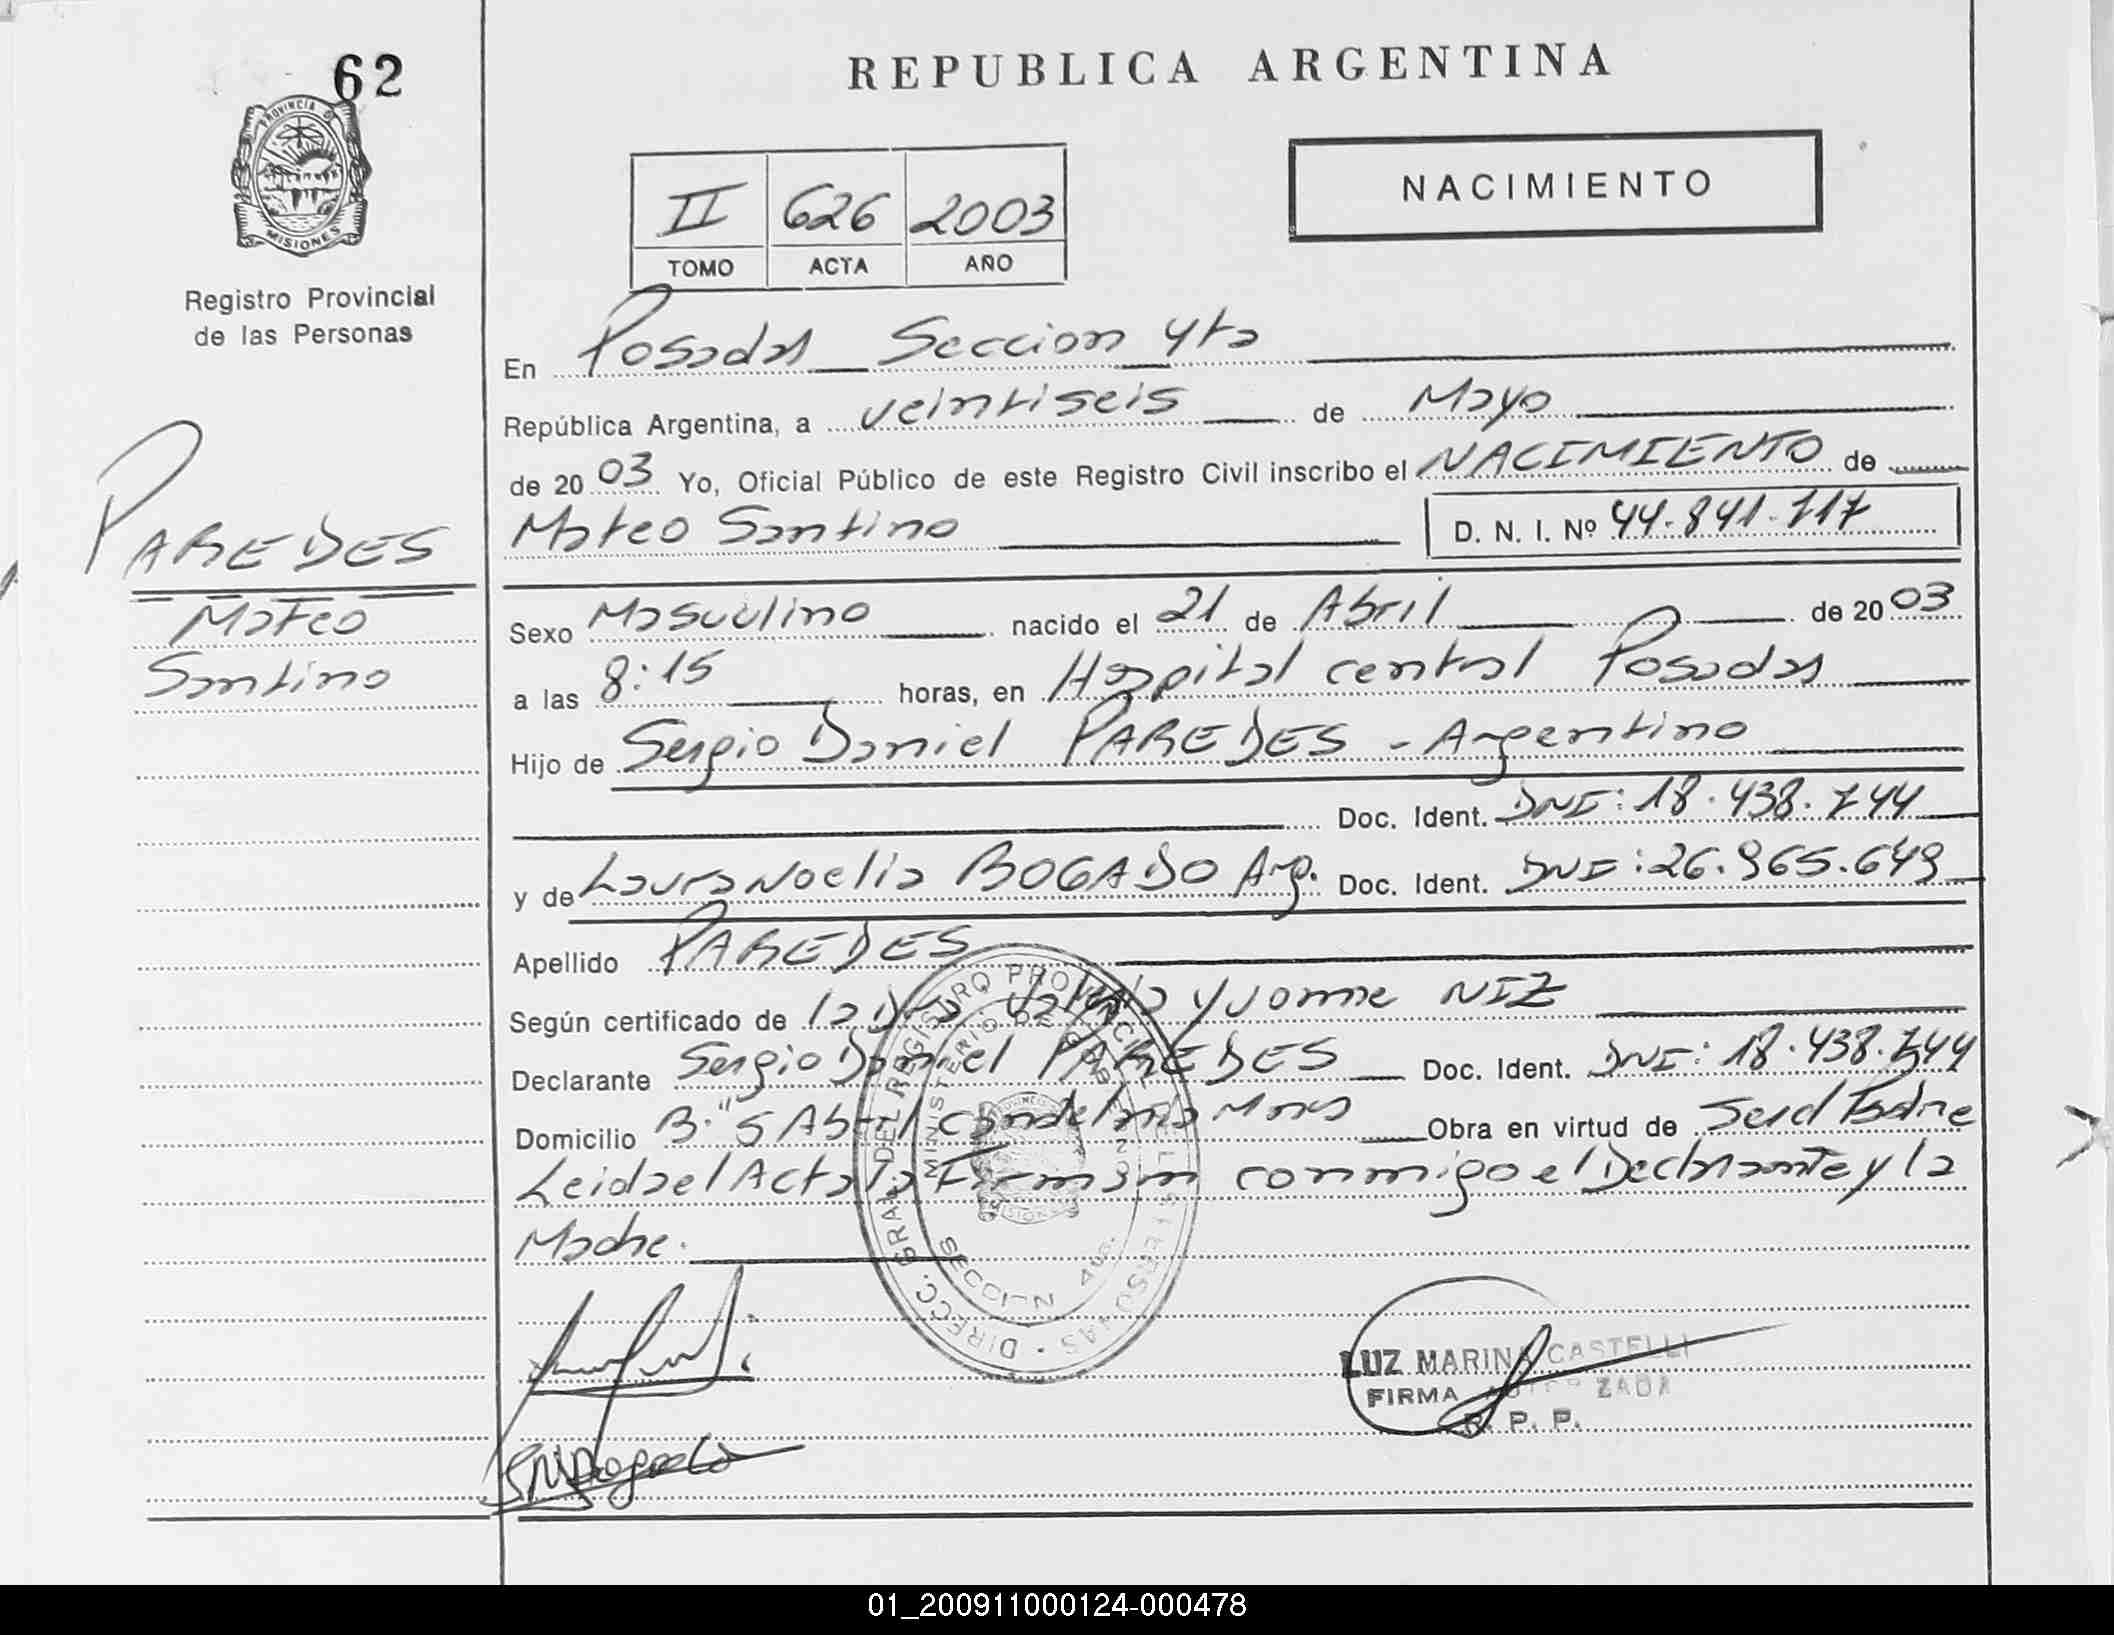 62
PROVINCIA DE
MISIONES
Registro Provincial
de las Personas
PAREDES
Mateo
Santino
REPUBLICA ARGENTINA
II 626 2003
TOMO ACTA AÑO
NACIMIENTO
En Posadas Seccion 4ta
República Argentina, a veintiseis de Mayo
de 2003 Yo, Oficial Público de este Registro Civil inscribo el NACIMIENTO de
Mateo Santino D. N. I. Nº 44.841.717
Sexo Masculino nacido el 21 de Abril de 2003
a las 8:15 horas, en Hospital central Posadas
Hijo de Sergio Daniel PAREDES - Argentino
Doc. Ident. DNI: 18.438.744
y de Laura Noelia BOGADO Arg. Doc. Ident. DNI: 26.965.649
Apellido PAREDES
Según certificado de la Dra. Yvonne NIZ
Declarante Sergio Daniel PAREDES Doc. Ident. DNI: 18.438.744
Domicilio B. "5 Abril Candelaria Mnes Obra en virtud de Ser el Padre
Leida el Acta la Firman conmigo el Declarante y la
Madre.
DIRECC. GRAL. DEL REGISTRO PROVINCIAL DE LAS PERSONAS
MINISTERIO DE GOBIERNO
SECCION
LUZ MARINA CASTELLI
FIRMA AUTORIZADA
R. P. P.
01_200911000124-000478